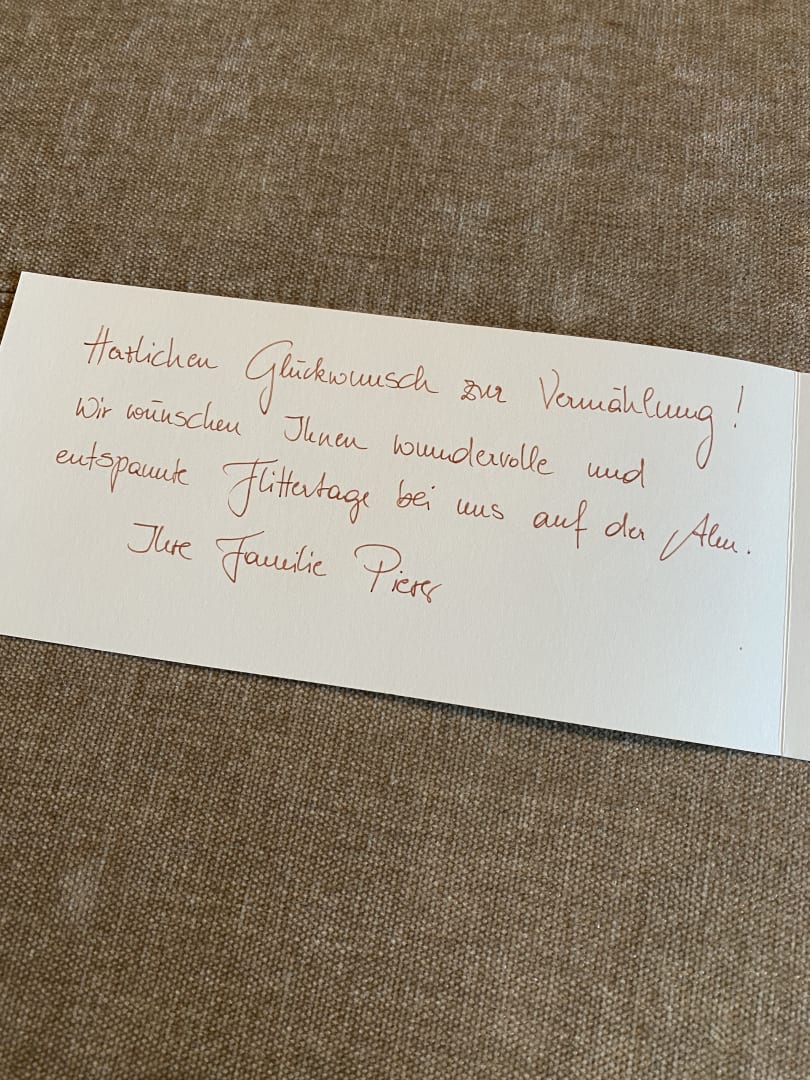 Herzlichen Glückwunsch zur Vermählung!
Wir wünschen Ihnen wundervolle und
entspannte Flittertage bei uns auf der Alm.
Ihre Familie Pierer